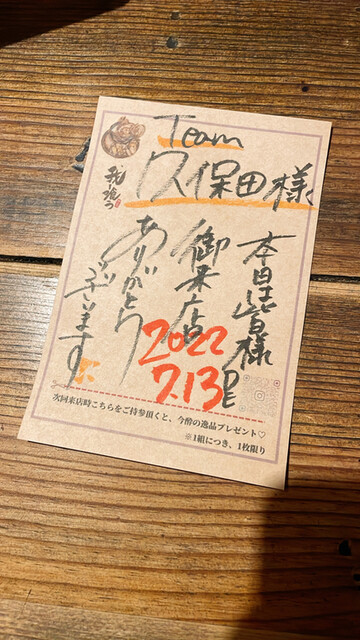 Team
久保田様
本日は皆様
御来店
ありがとう
ございます
2022
7.13
次回来店時こちらをご持参頂くと、今酔の逸品プレゼント♡
※1組につき、1枚限り